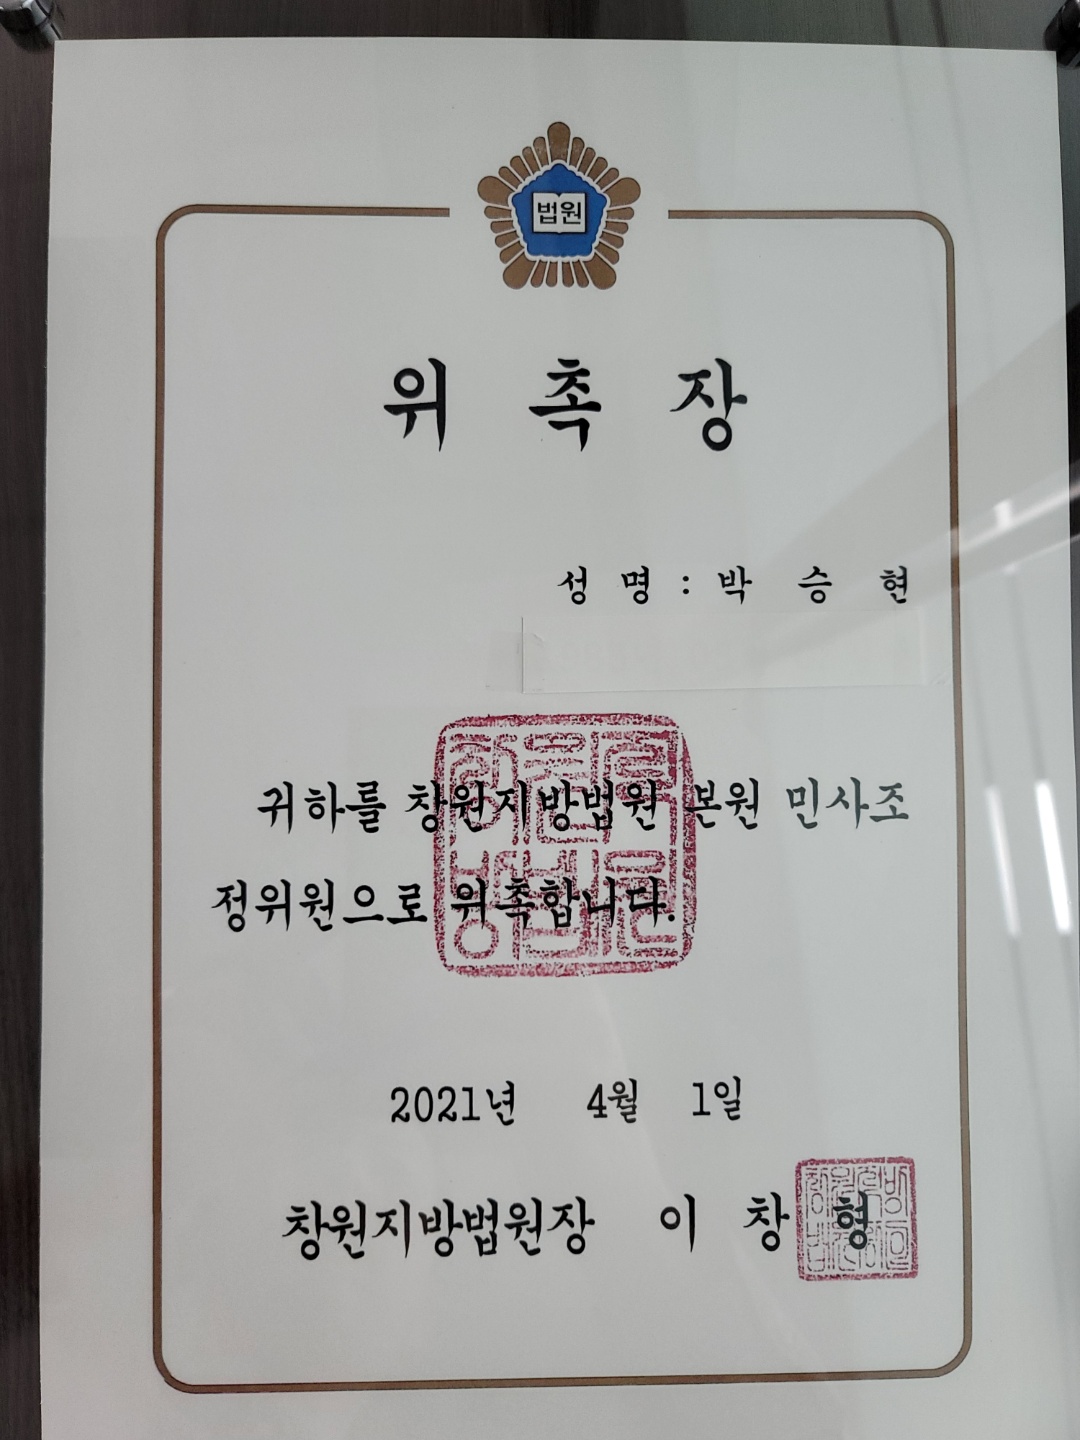 법원
위 촉 장
성 명 : 박 승 현
귀하를 창원지방법원 본원 민사조
정위원으로 위촉합니다.
2021년 4월 1일
창원지방법원장 이 창 형